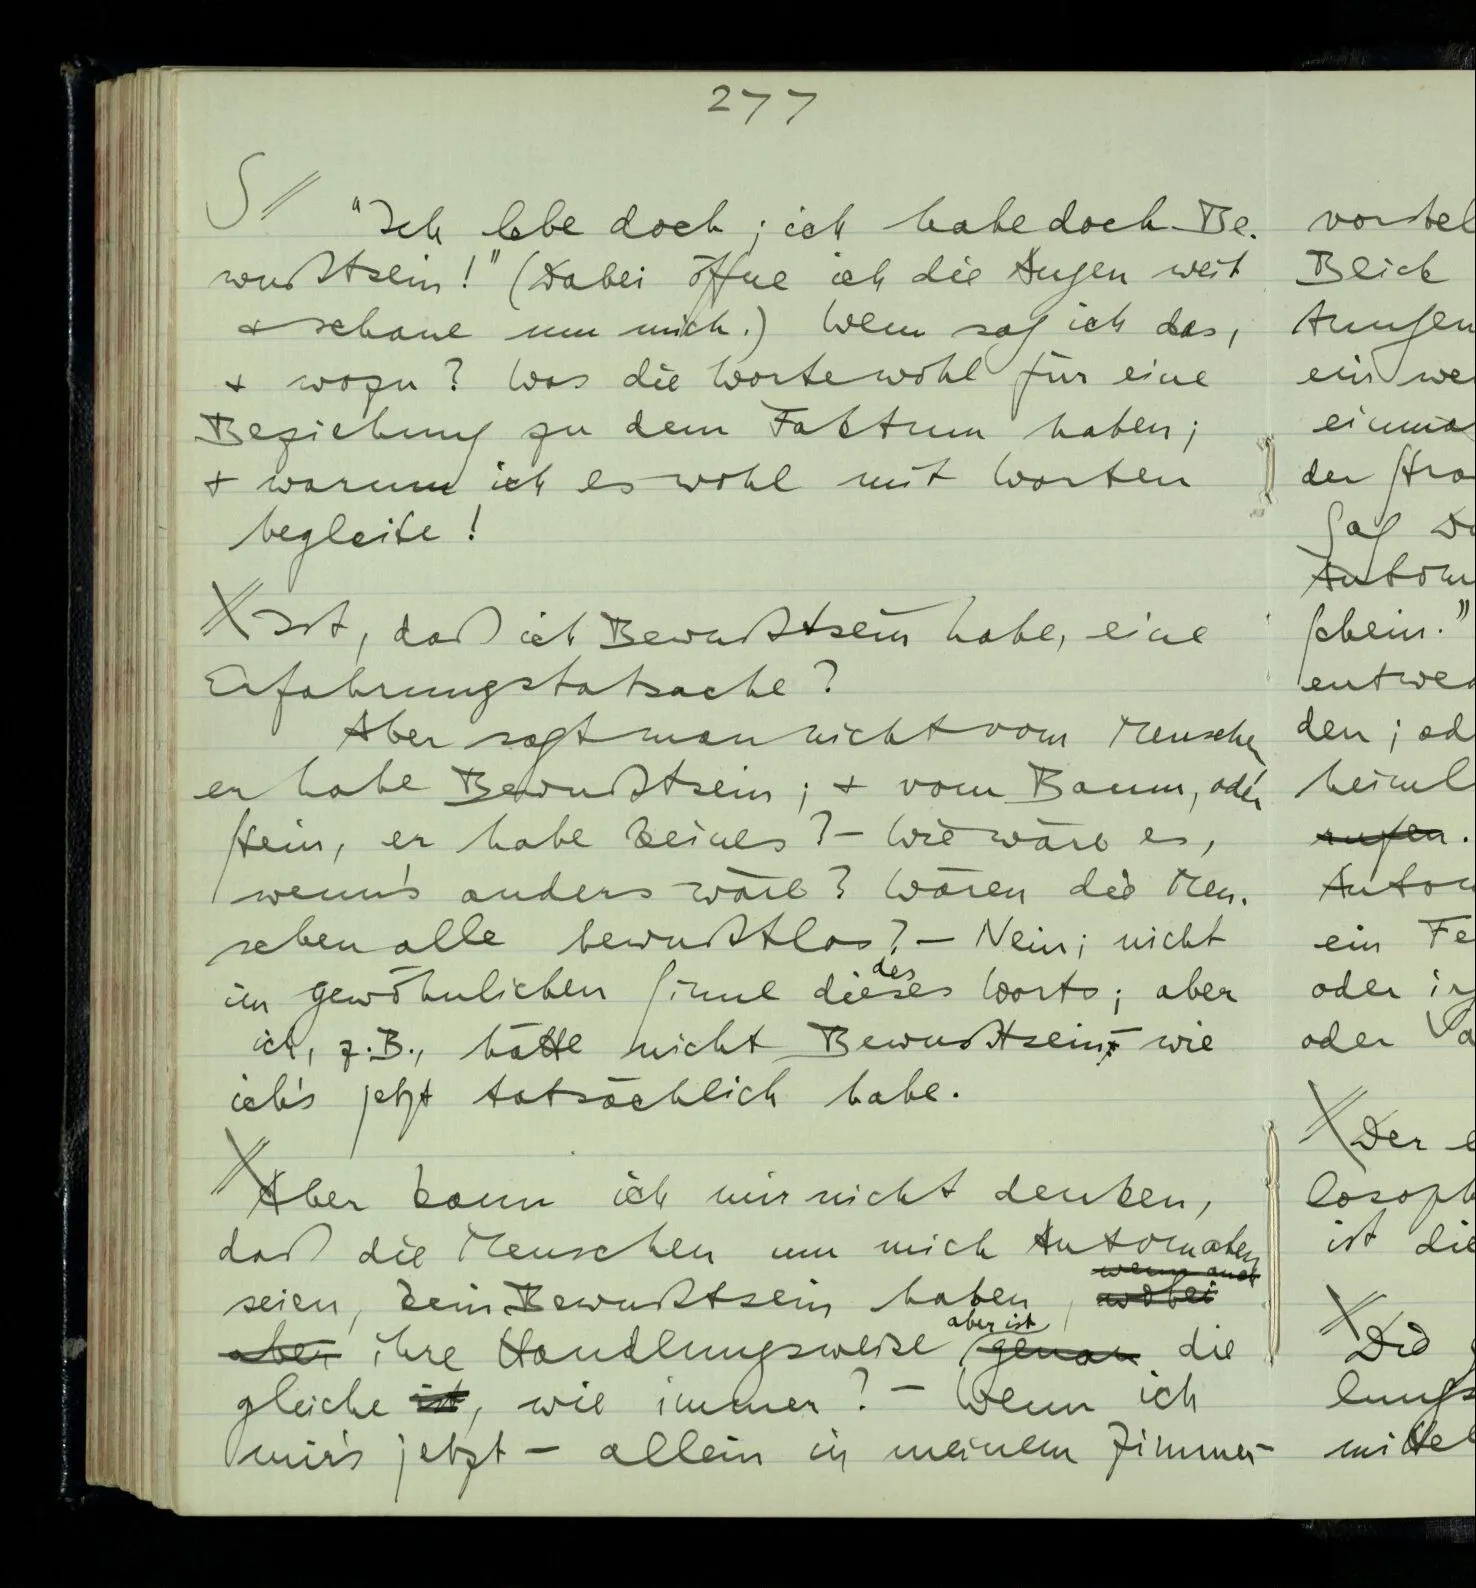 277
S //
"Ich lebe doch; ich habe doch Be-
wußtsein!" (Dabei öffne ich die Augen weit
+ schaue um mich.) Wem sag ich das,
+ wozu? Was die Worte wohl für eine
Beziehung zu dem Faktum haben;
+ warum ich es wohl mit Worten
begleite!
Ist, daß ich Bewußtsein habe, eine
Erfahrungstatsache?
Aber sagt man nicht vom Menschen
er habe Bewußtsein; + vom Baum, oder
Stein, er habe keines? – Wie wäre es,
wenn's anders wäre? Wären die Men-
schen alle bewußtlos? – Nein; nicht
des
im gewöhnlichen Sinne dieses Worts; aber
ich, z.B., hätte nicht Bewußtsein – wie
ich's jetzt tatsächlich habe.
Aber kann ich mir nicht denken,
daß die Menschen um mich Automaten
wenn auch
seien, kein Bewußtsein haben, wobei
aber ist
aber ihre Handlungsweise genau die
gleiche ist, wie immer? – Wenn ich
mir's jetzt – allein in meinem Zimmer –
vorstel
Blick
Augen
ein we
einma
der Stra
Sag D
Autom
schein."
entwed
den; od
heiml
rufen.
Autom
ein Fe
oder
oder
Der
losoph
ist die
Die
lungs
mittel